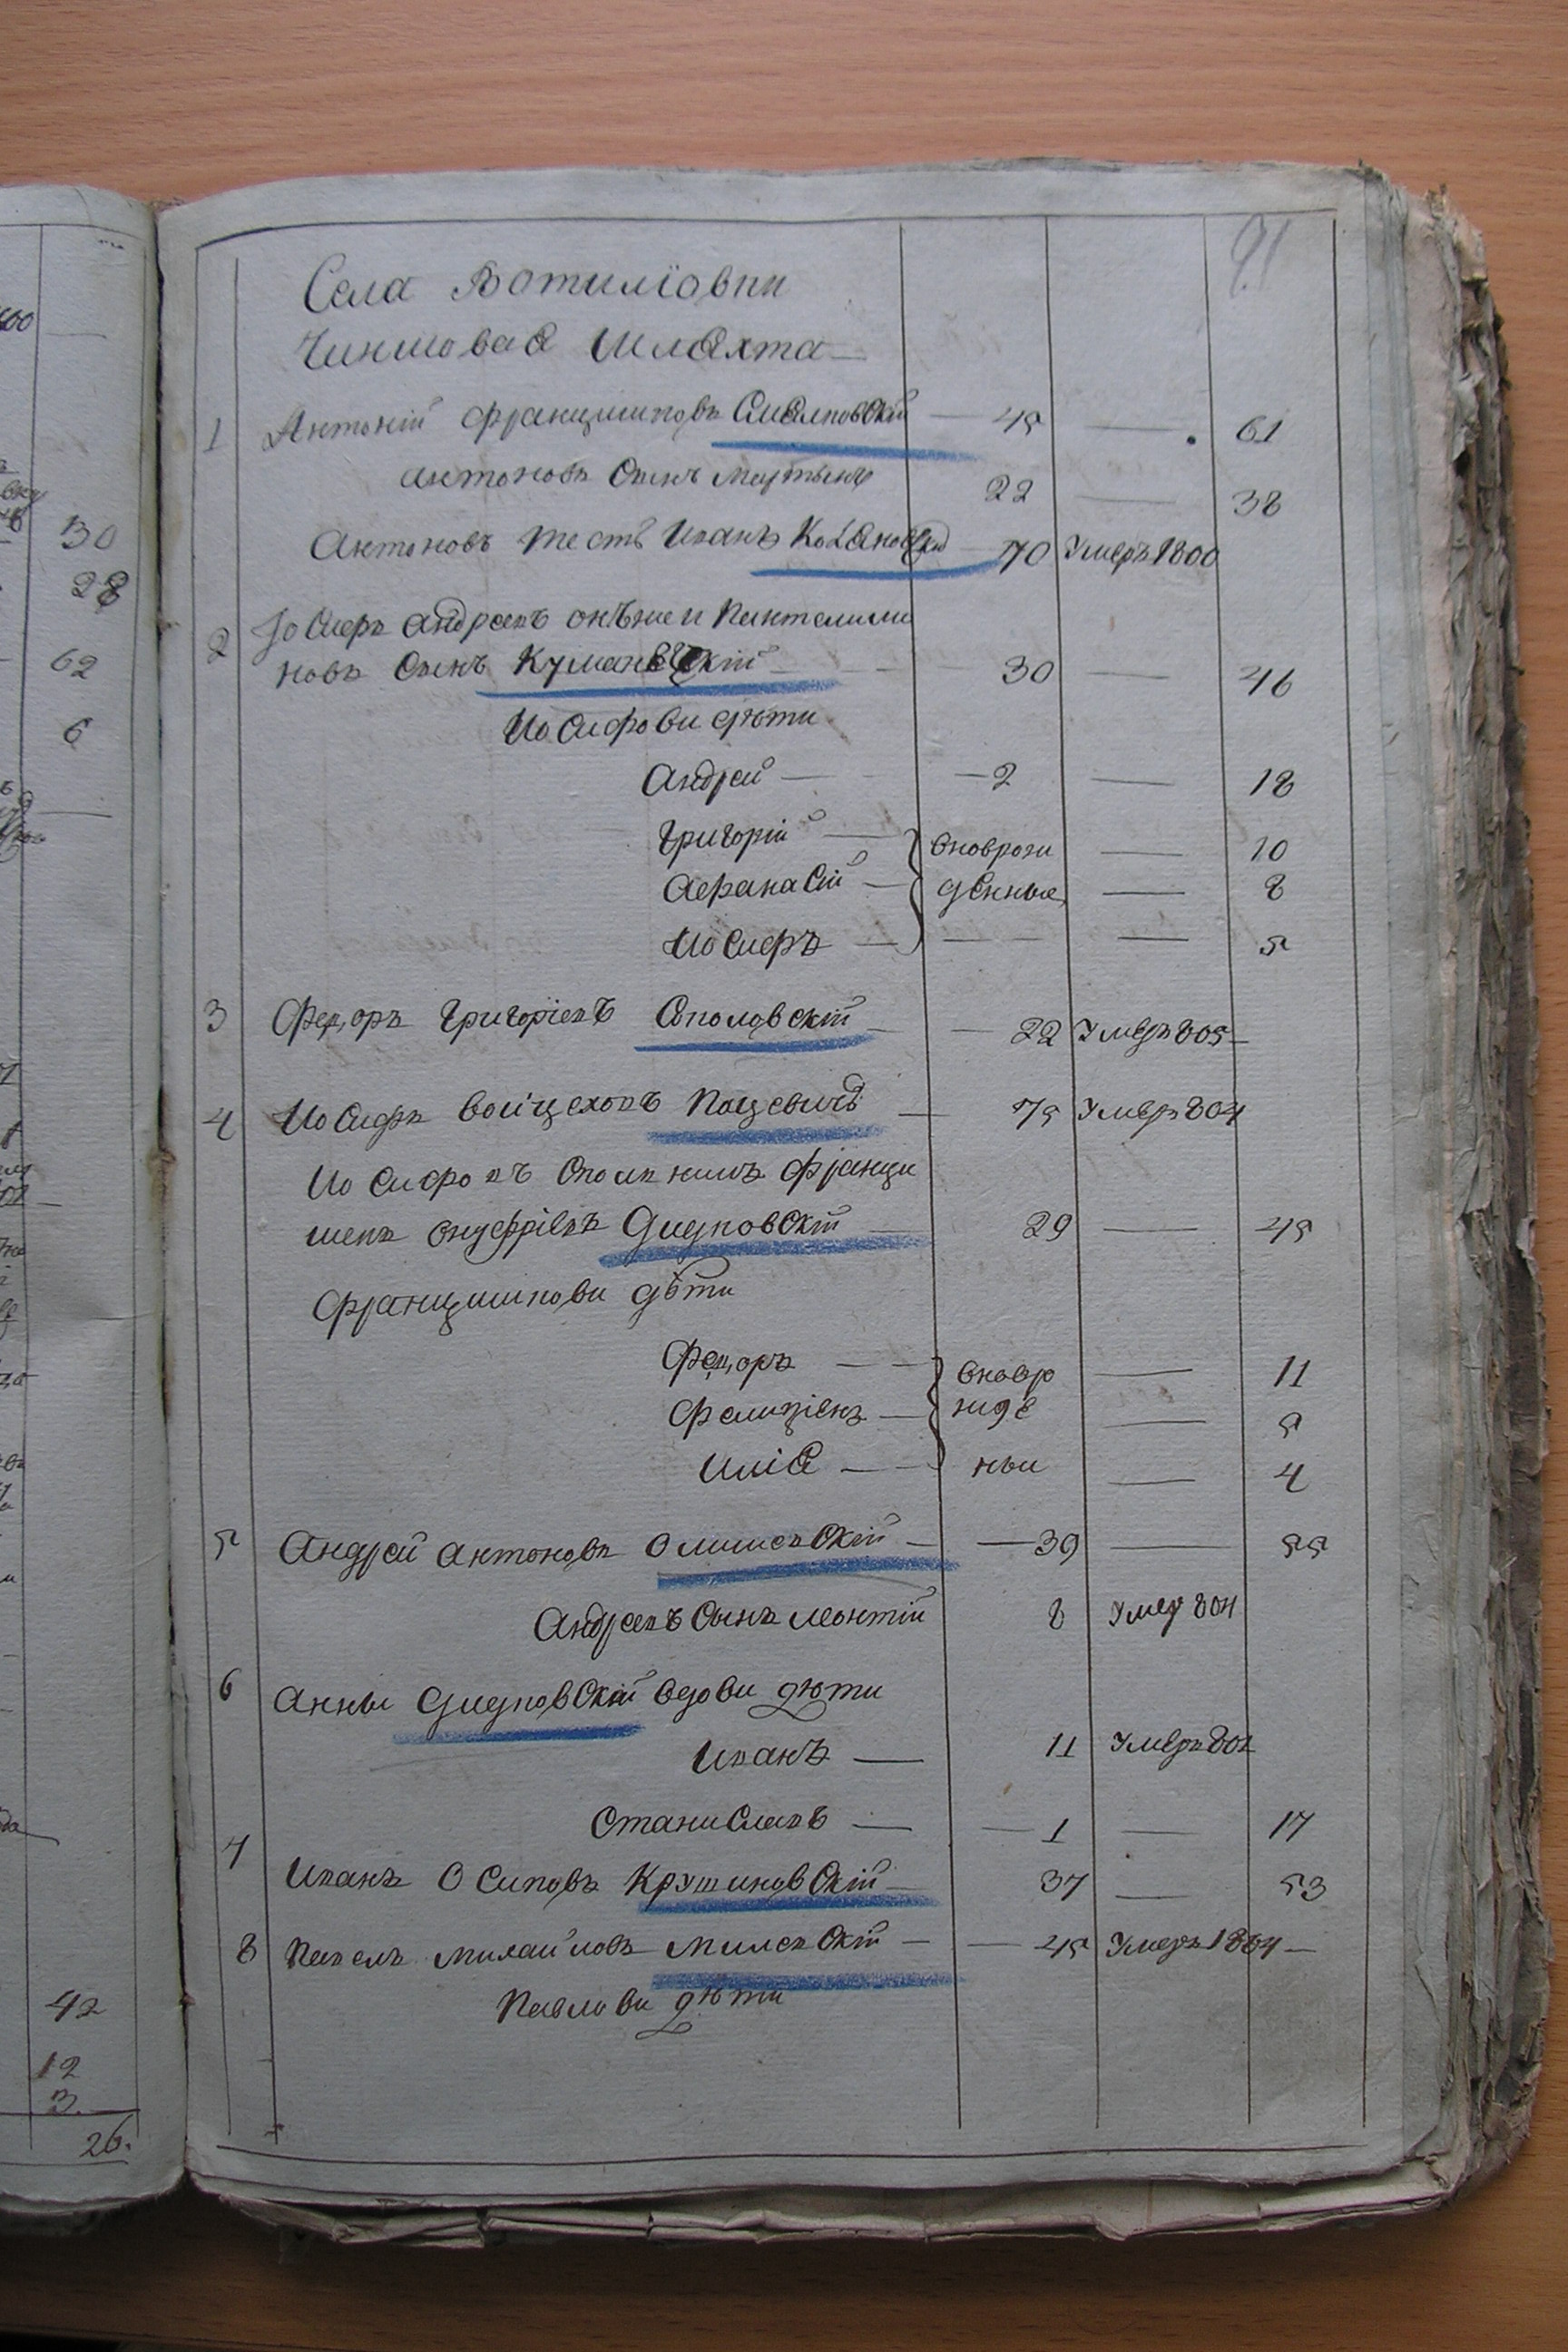 91
Села Вотилїовки
Чиншовая Шляхта
1 Антоній Францишковъ 45 — 61
антоновъ Сынъ Мартынъ 22 — 38
Антоновъ тесть Иванъ 70 Умеръ 1800
2 Іосифъ андреевъ онъже и Пантелимо
новъ Сынъ Куманецкій 30 — 46
Иосифови дѣти
Андрей — 2 — 18
Григорій — вноврож — 10
Афанасій — денные — 8
Иосифъ — 5
3 Федоръ Григоріевъ Соколовскій — 22 Умеръ 805
4 Иосифъ Войцеховъ Пацевичъ — 75 Умеръ 804
Иосифовъ Францы
шекъ Онуфріевъ Дидковскій 29 — 45
Францишкови дѣти
Федоръ — вновро — 11
Фелиціянъ — жде — 5
Илія — ныи — 4
5 Андрей антоновъ Олишевскій — 39 — 55
Андреевъ Сынъ леонтій 8 Умер 804
6 Анны Дидковскій вдови дѣти
Иванъ — 11 Умеръ 802
Станиславъ — 1 — 17
7 Иванъ Осиповъ Крушиновскій — 37 — 53
8 Павелъ Михайловъ Милевскій — 45 Умеръ 1804
Павлови дѣти
30
28
62
6
42
12
3.
26.